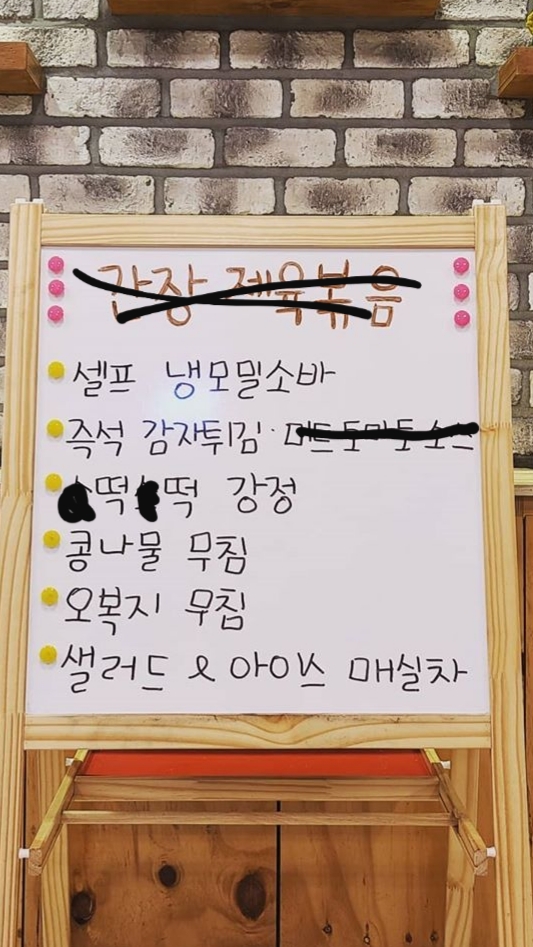 간장 제육볶음
셀프 냉모밀소바
즉석 감자튀김·
떡 떡 강정
콩나물 무침
오복지 무침
샐러드 & 아이스 매실차